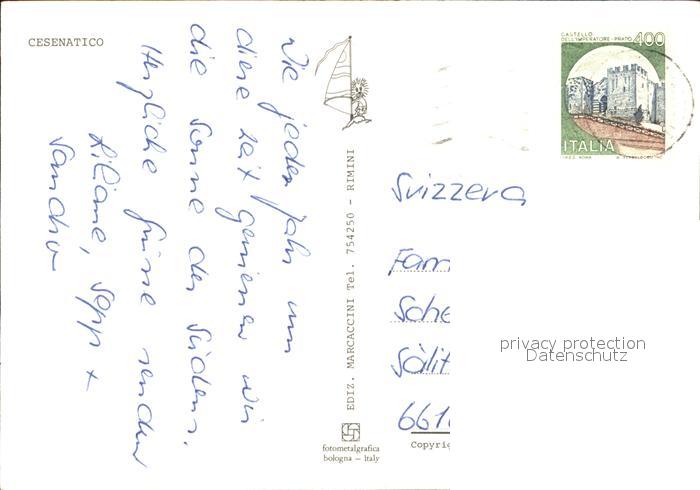 CESENATICO
Wie jeden Jahr um
diese Zeit geniessen wir
die Sonne des Südens.
Herzliche Grüsse senden
Liliane, Sepp +
Sandro
EDIZ. MARCACCINI Tel. 754250 - RIMINI
fotometalgrafica
bologna – Italy
CASTELLO
DELL'IMPERATORE - PRATO 400
ITALIA
Svizzera
Fam
Sche
Sälit
661
Copyrig
privacy protection
Datenschutz